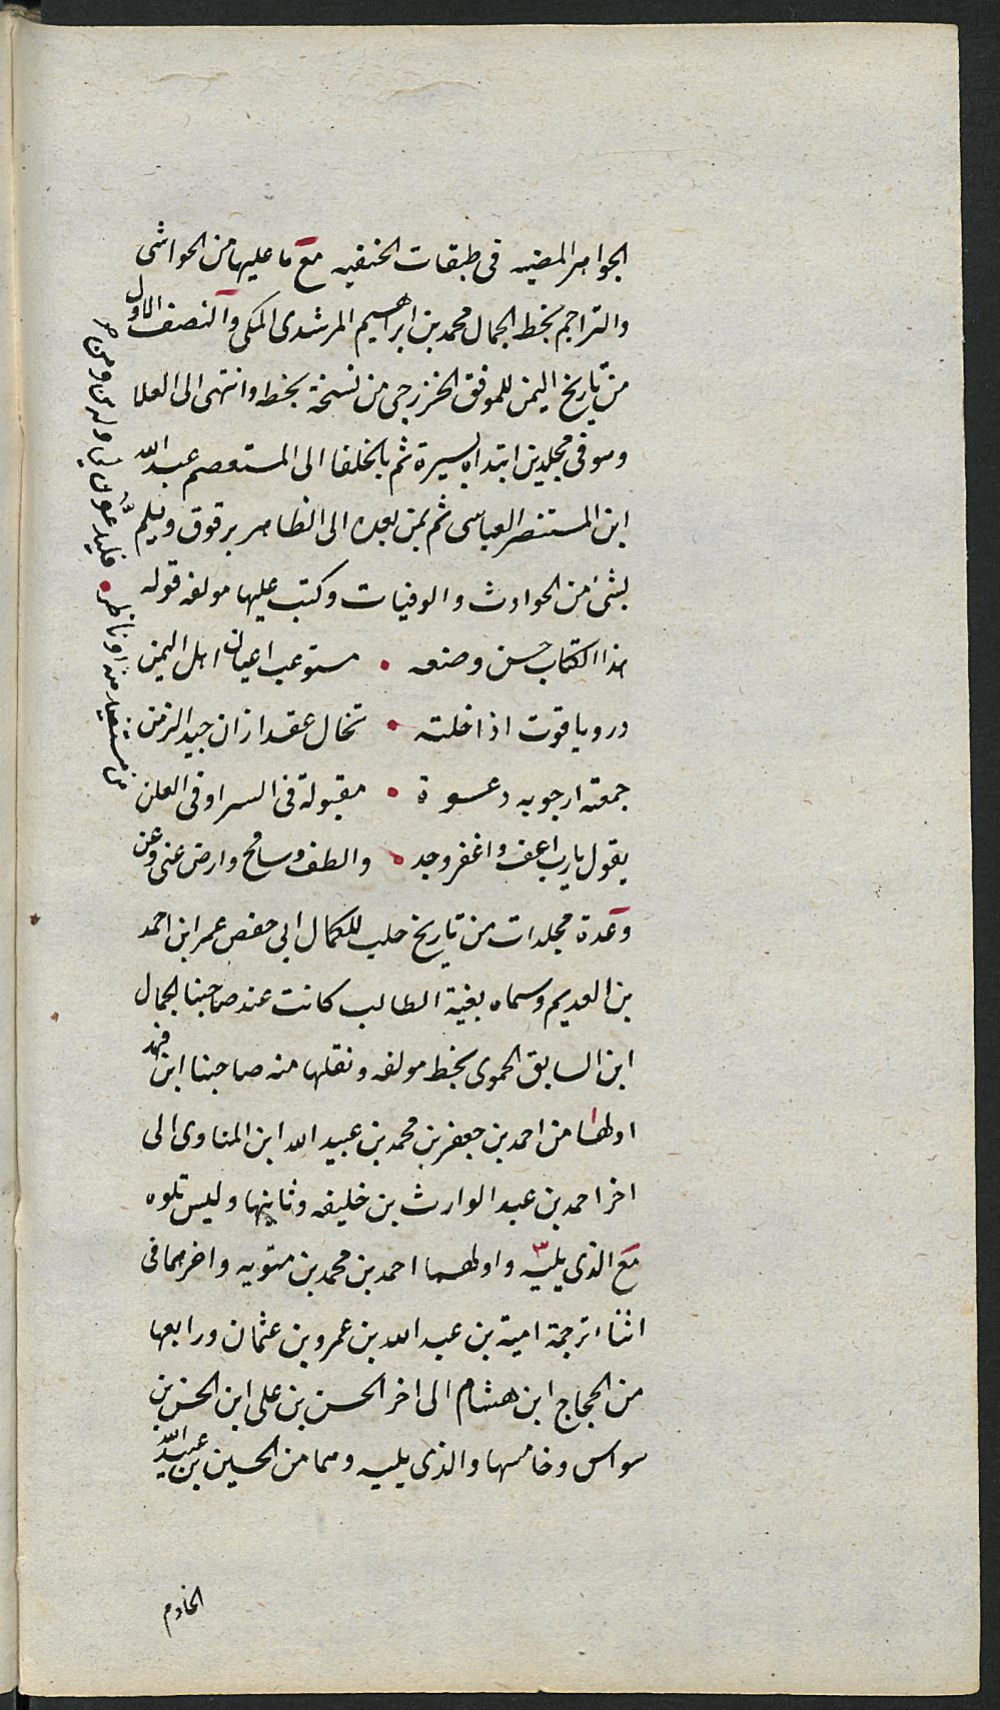 الجواهر المضيه فى طبقات الحنفيه مع ما عليها من الحواشى
والتراجم بخط الجمال محمد بن ابراهيم المرشدى المكى والنصف الاول
من تاريخ اليمن للموفق الخزرجى من نسخة بخطه وانتهى الى العلا
وهو فى مجلدين ابتداه بسيرة ثم بالخلفا الى المستعصم عبد الله
ابن المستنصر العباسى ثم بمن بعده الى الظاهر برقوق ويلم
بشئ من الحوادث والوفيات وكتب عليها مولفه قوله
هذا الكتاب حسن وضعه • مستوعب اعيان اهل اليمن
در وياقوت اذا خلته • تخال عقدا زان جيد الزمن
جمعته ارجو به دعوة • مقبولة فى السر او فى العلن
يقول يا رب اعف واغفر وجد • والطف وسامح وارض عنى وعن
وعدة مجلدات من تاريخ حلب للكمال ابى حفص عمر ابن احمد
بن العديم وسماه بغية الطالب كانت عند صاحبنا الجمال
ابن السابق الحموى بخط مولفه ونقلها منه صاحبنا ابن فهد
اولها من احمد بن جعفر بن محمد بن عبيد الله ابن المناوى الى
اخر احمد بن عبد الوارث بن خليفه وثانيها وليس تلوه
مع الذى يليه ٣ واولهما احمد بن محمد بن متويه واخرهما فى
اثناء ترجمة امية بن عبد الله بن عمرو بن عثمان ورابعها
من الحجاج ابن هشام الى اخر الحسن بن على ابن الحسن بن
سواس وخامسها والذى يليه وهما من الحسين بن عبيد الله
الخادم
من مستفيد منه او ناظر •